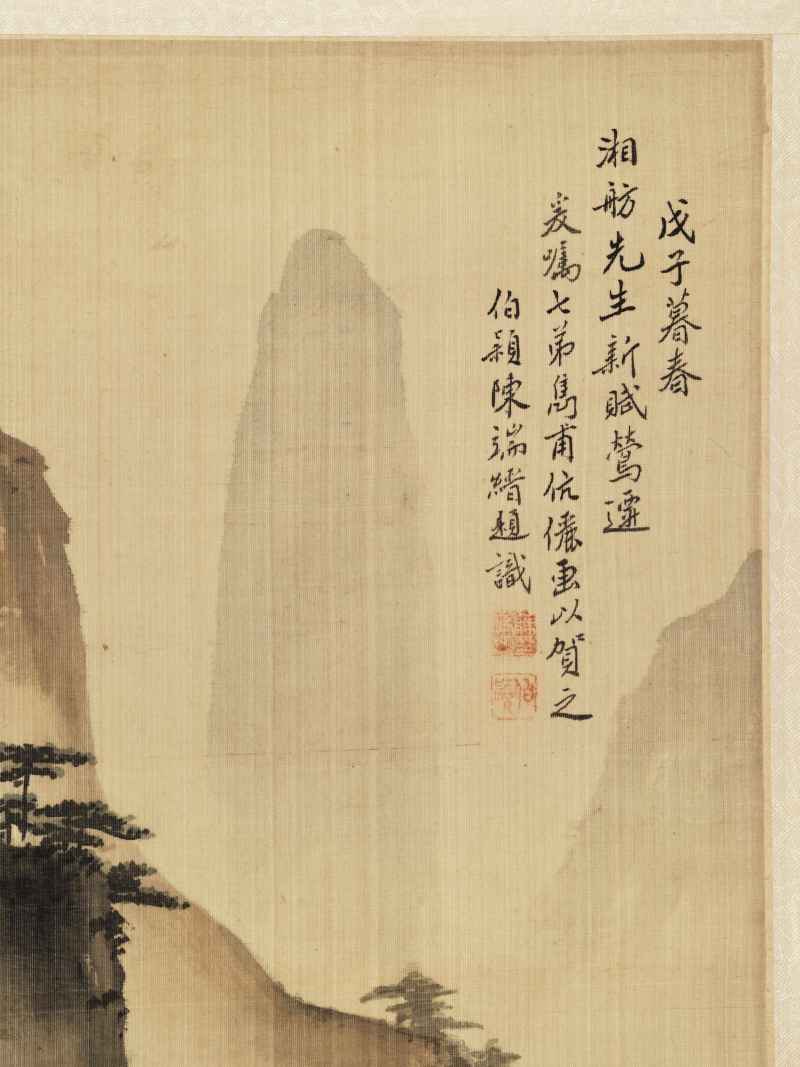 戊子暮春
湘舫先生新賦鶯遷
爰囑七弟雋甫伉儷畫以賀之
伯穎陳端縉題識